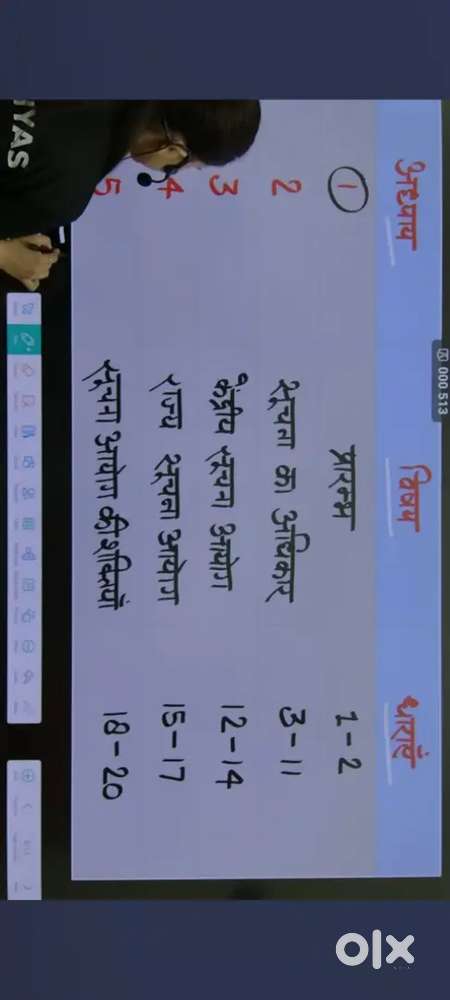 000 513
अध्याय विषय धाराएं
1 प्रारम्भ 1-2
2 सूचना का अधिकार 3-11
3 केंद्रीय सूचना आयोग 12-14
4 राज्य सूचना आयोग 15-17
5 सूचना आयोग की शक्तियाँ 18-20
olx